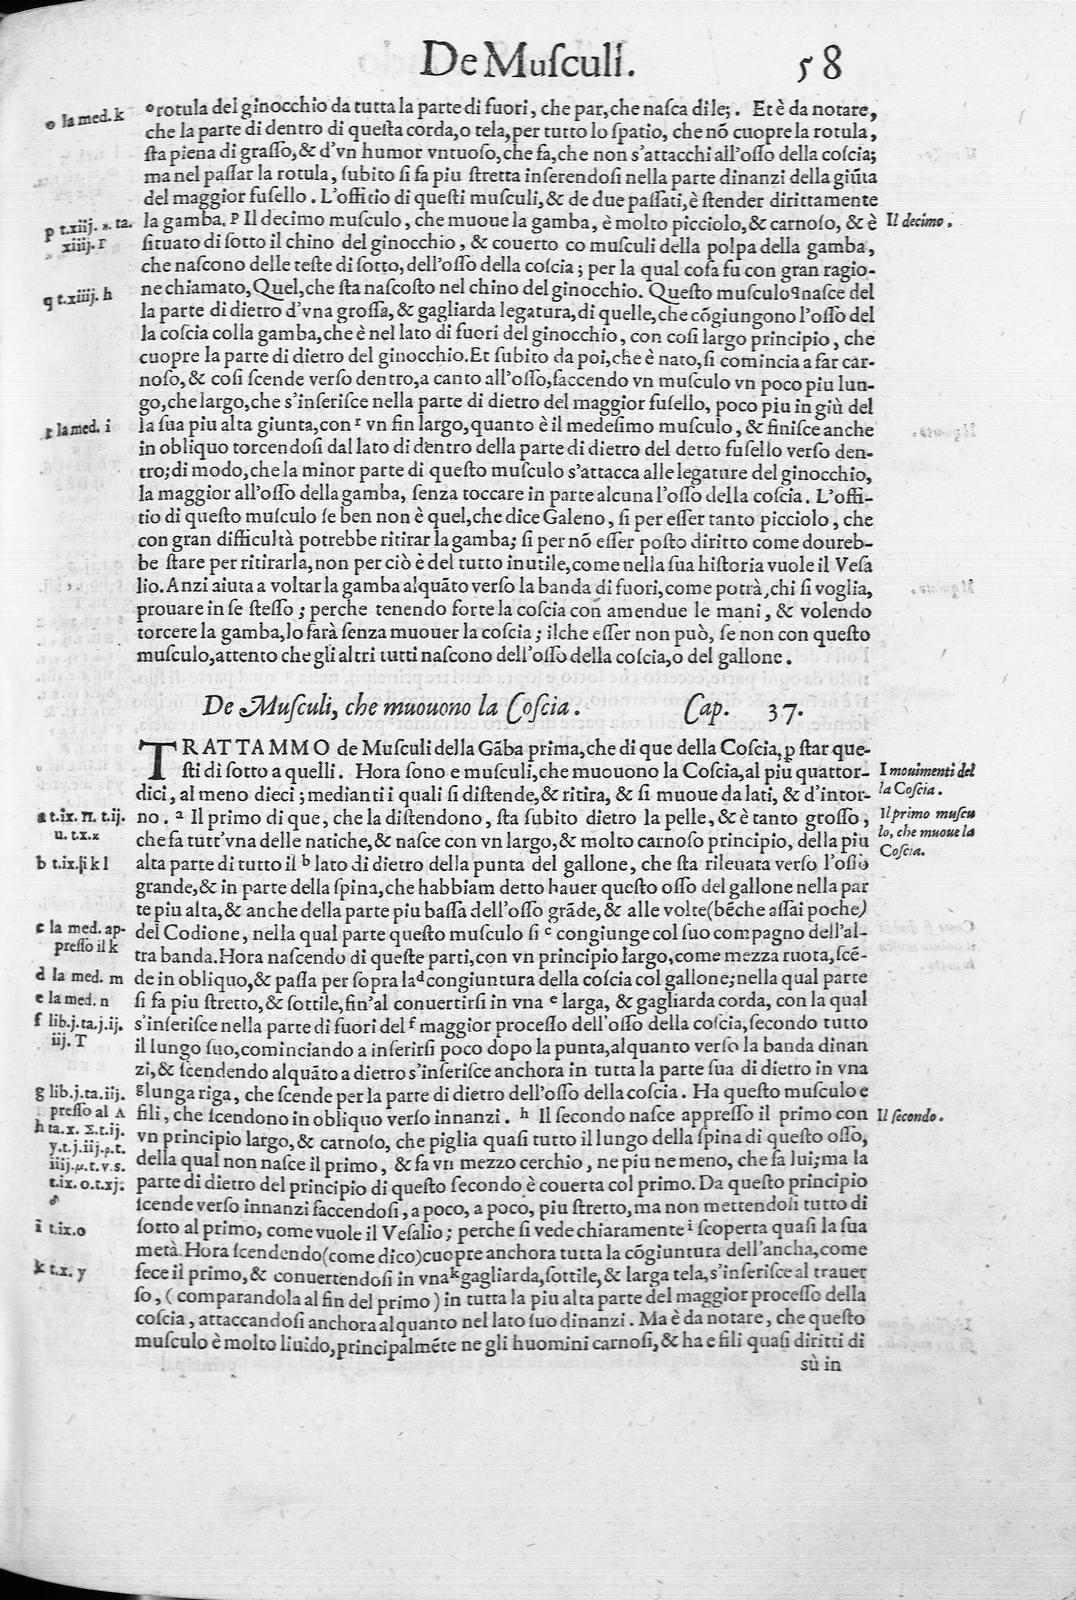 De Muſculi. 58
o la med. k
ºrotula del ginocchio da tutta la parte di fuori, che par, che naſca di le;. Et è da notare,
che la parte di dentro di queſta corda, o tela, per tutto lo ſpatio, che nõ cuopre la rotula,
ſta piena di graſſo, & d'vn humor vntuoſo, che fa, che non s'attacchi all'oſſo della coſcia;
ma nel paſſar la rotula, ſubito ſi fa piu ſtretta inſerendoſi nella parte dinanzi della giũta
del maggior fuſello. L'offitio di queſti muſculi, & de due paſſati, è ſtender dirittamente
p t.xiij. ta.
xiiij. r
la gamba. ᵖ Il decimo muſculo, che muoue la gamba, è molto picciolo, & carnoſo, & è
Il decimo.
ſituato di ſotto il chino del ginocchio, & couerto co muſculi della polpa della gamba,
che naſcono delle teſte di ſotto, dell'oſſo della coſcia; per la qual coſa fu con gran ragio-
q t.xiiij. h
ne chiamato, Quel, che ſta naſcoſto nel chino del ginocchio. Queſto muſculo q naſce del
la parte di dietro d'vna groſſa, & gagliarda legatura, di quelle, che cõgiungono l'oſſo del
la coſcia colla gamba, che è nel lato di fuori del ginocchio, con coſi largo principio, che
cuopre la parte di dietro del ginocchio. Et ſubito da poi, che è nato, ſi comincia a far car-
noſo, & coſi ſcende verſo dentro, a canto all'oſſo, faccendo vn muſculo vn poco piu lun-
go, che largo, che s'inſeriſce nella parte di dietro del maggior fuſello, poco piu in giù del
r la med. i
la ſua piu alta giunta, con ʳ vn fin largo, quanto è il medeſimo muſculo, & finiſce anche
in obliquo torcendoſi dal lato di dentro della parte di dietro del detto fuſello verſo den-
tro; di modo, che la minor parte di queſto muſculo s'attacca alle legature del ginocchio,
la maggior all'oſſo della gamba, ſenza toccare in parte alcuna l'oſſo della coſcia. L'offi-
tio di queſto muſculo ſe ben non è quel, che dice Galeno, ſi per eſſer tanto picciolo, che
con gran difficultà potrebbe ritirar la gamba; ſi per nõ eſſer poſto diritto come doureb-
be ſtare per ritirarla, non per ciò è del tutto inutile, come nella ſua hiſtoria vuole il Veſa
lio. Anzi aiuta a voltar la gamba alquãto verſo la banda di fuori, come potrà, chi ſi voglia,
prouare in ſe ſteſſo; perche tenendo forte la coſcia con amendue le mani, & volendo
torcere la gamba, lo farà ſenza muouer la coſcia; ilche eſſer non può, ſe non con queſto
muſculo, attento che gli altri tutti naſcono dell'oſſo della coſcia, o del gallone.
De Muſculi, che muouono la Coſcia. Cap. 37.
TRATTAMMO de Muſculi della Gãba prima, che di que della Coſcia, ꝑ ſtar que-
ſti di ſotto a quelli. Hora ſono e muſculi, che muouono la Coſcia, al più quattor-
I mouimenti del
la Coſcia.
dici, al meno dieci; medianti i quali ſi diſtende, & ritira, & ſi muoue da lati, & d'intor-
a t.ix. π. t.ij.
u. t.x.
no. ᵃ Il primo di que, che la diſtendono, ſta ſubito dietro la pelle, & è tanto groſſo,
Il primo muſcu
lo, che muoue la
Coſcia.
che fa tutt'vna delle natiche, & naſce con vn largo, & molto carnoſo principio, della più
b t.ix. k l
alta parte di tutto il ᵇ lato di dietro della punta del gallone, che ſta rileuata verſo l'oſſo
grande, & in parte della ſpina, che habbiam detto hauer queſto oſſo del gallone nella par
te piu alta, & anche della parte piu baſſa dell'oſſo grãde, & alle volte (bẽche aſſai poche)
c la med. ap-
preſſo il k
del Codione, nella qual parte queſto muſculo ſi ᶜ congiunge col ſuo compagno dell'al-
tra banda. Hora naſcendo di queſte parti, con vn principio largo, come mezza ruota, ſcẽ-
d la med. m
de in obliquo, & paſſa per ſopra la ᵈ congiuntura della coſcia col gallone; nella qual parte
e la med. n
ſi fa piu ſtretto, & ſottile, fin'al conuertirſi in vna ᵉ larga, & gagliarda corda, con la qual
f lib.j.ta.j.ij.
iij. T
s'inſeriſce nella parte di fuori del ᶠ maggior proceſſo dell'oſſo della coſcia, ſecondo tutto
il lungo ſuo, cominciando a inſerirſi poco dopo la punta, alquanto verſo la banda dinan
zi, & ſcendendo alquãto a dietro s'inſeriſce anchora in tutta la parte ſua di dietro in vna
g lib.j.ta.iij.
preſſo al Λ
ᵍlunga riga, che ſcende per la parte di dietro dell'oſſo della coſcia. Ha queſto muſculo e
fili, che ſcendono in obliquo verſo innanzi. ʰ Il ſecondo naſce appreſſo il primo con
Il ſecondo.
h ta.x. Σ.t.ij.
y.t.j.iij.ρ.t.
iiij.μ.t.v.s.
t.ix.o.t.xj:
vn principio largo, & carnoſo, che piglia quaſi tutto il lungo della ſpina di queſto oſſo,
della qual non naſce il primo, & fa vn mezzo cerchio, ne piu ne meno, che fa lui; ma la
parte di dietro del principio di queſto ſecondo è couerta col primo. Da queſto principio
ſcende verſo innanzi faccendoſi, a poco, a poco, piu ſtretto, ma non mettendoſi tutto di
i t.ix.o
ſotto al primo, come vuole il Veſalio; perche ſi vede chiaramente ⁱ ſcoperta quaſi la ſua
metà. Hora ſcendendo (come dico) cuopre anchora tutta la cõgiuntura dell'ancha, come
k t.x. y
fece il primo, & conuertendoſi in vna ᵏ gagliarda, ſottile, & larga tela, s'inſeriſce al trauer
ſo, (comparandola al fin del primo) in tutta la piu alta parte del maggior proceſſo della
coſcia, attaccandoſi anchora alquanto nel lato ſuo dinanzi. Ma è da notare, che queſto
muſculo è molto liuido, principalmẽte ne gli huomini carnoſi, & ha e fili quaſi diritti di
sù in